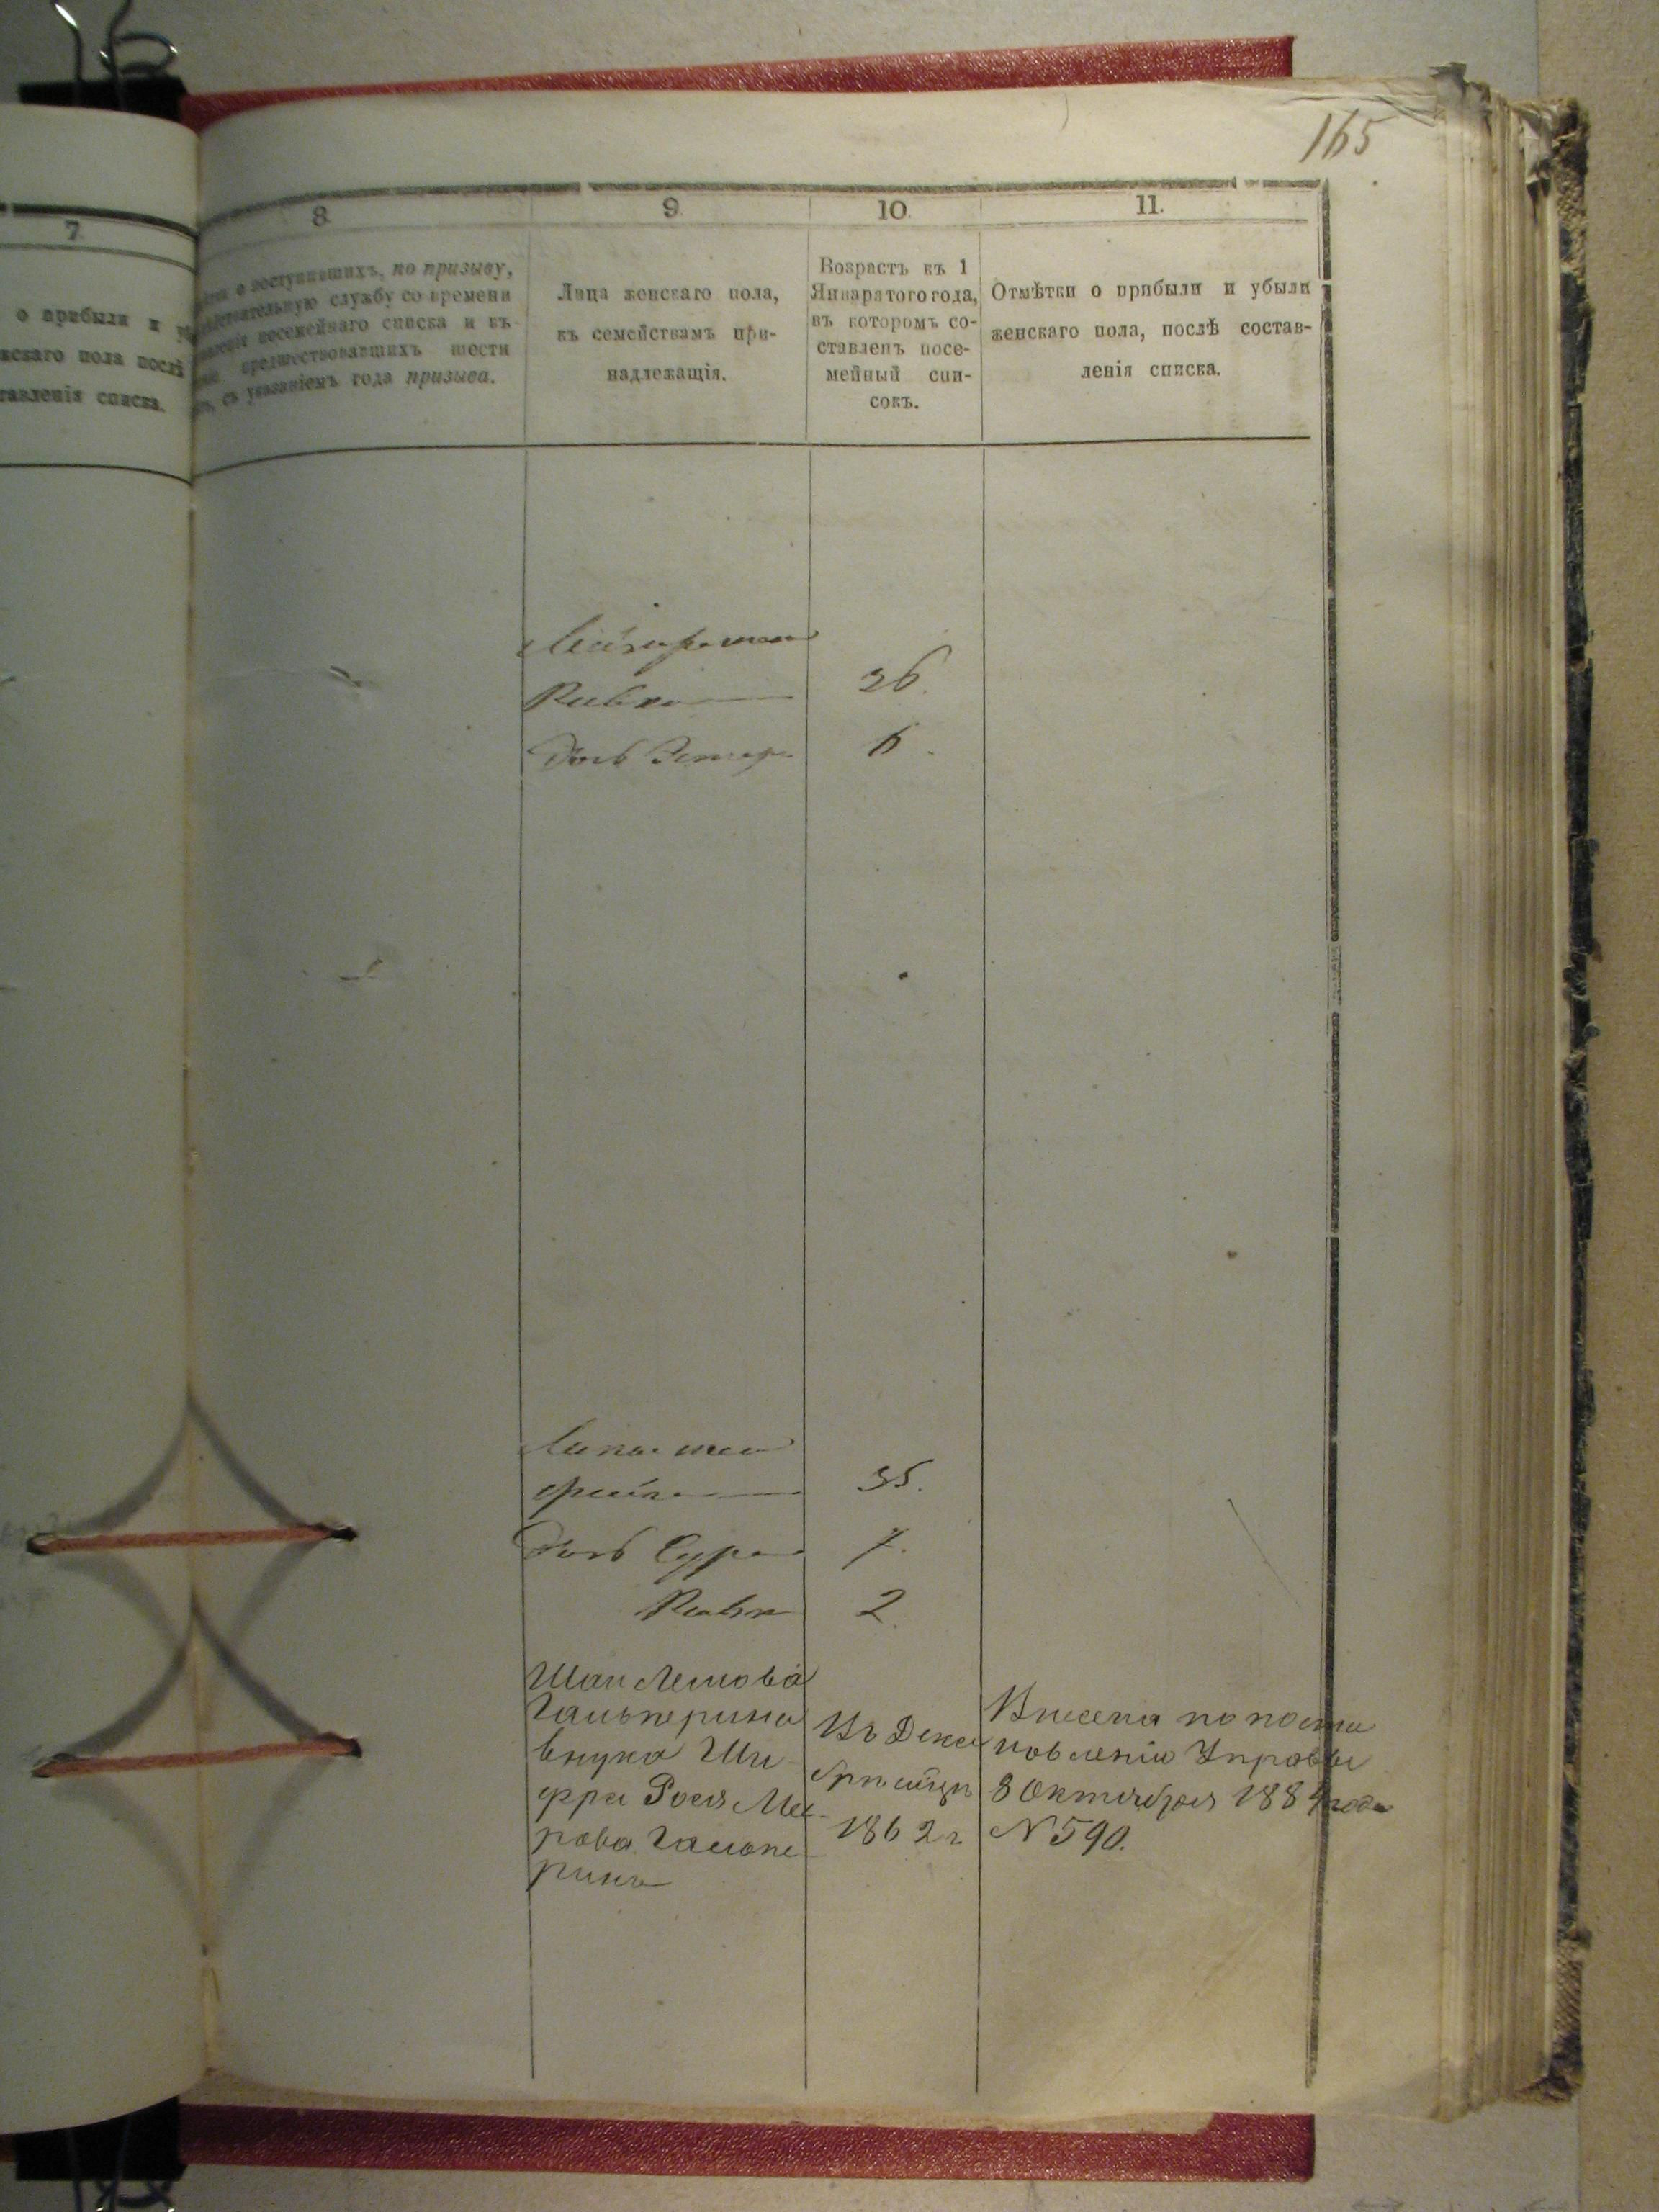 165
7
о прибыли и
женскаго пола послѣ
ставленія списка.
8.
о поступившихъ, по призыву,
дѣйствительную службу со времени
составленія посемейнаго списка и въ
предшествовавшихъ шести
съ указаніемъ года призыва.
9.
Лица женскаго пола,
къ семействамъ при-
надлежащія.
10.
Возрастъ къ 1
Января того года,
въ которомъ со-
ставленъ посе-
мейный спи-
сокъ.
11.
Отмѣтки о прибыли и убыли
женскаго пола, послѣ состав-
ленія списка.
Лейзера жена
Ривка 36.
дочь Эстеръ 6.
жена
Фейга 35.
дочь Сура 7.
Ривка 2.
Гальперина
внука Ши
фра Рося Мее-
рова Гальпе
рина
Въ Дека
брѣ мѣцѣ
1862 г.
Внесена по поста
новленію Управы
8 Октября 1884 года
№ 590.